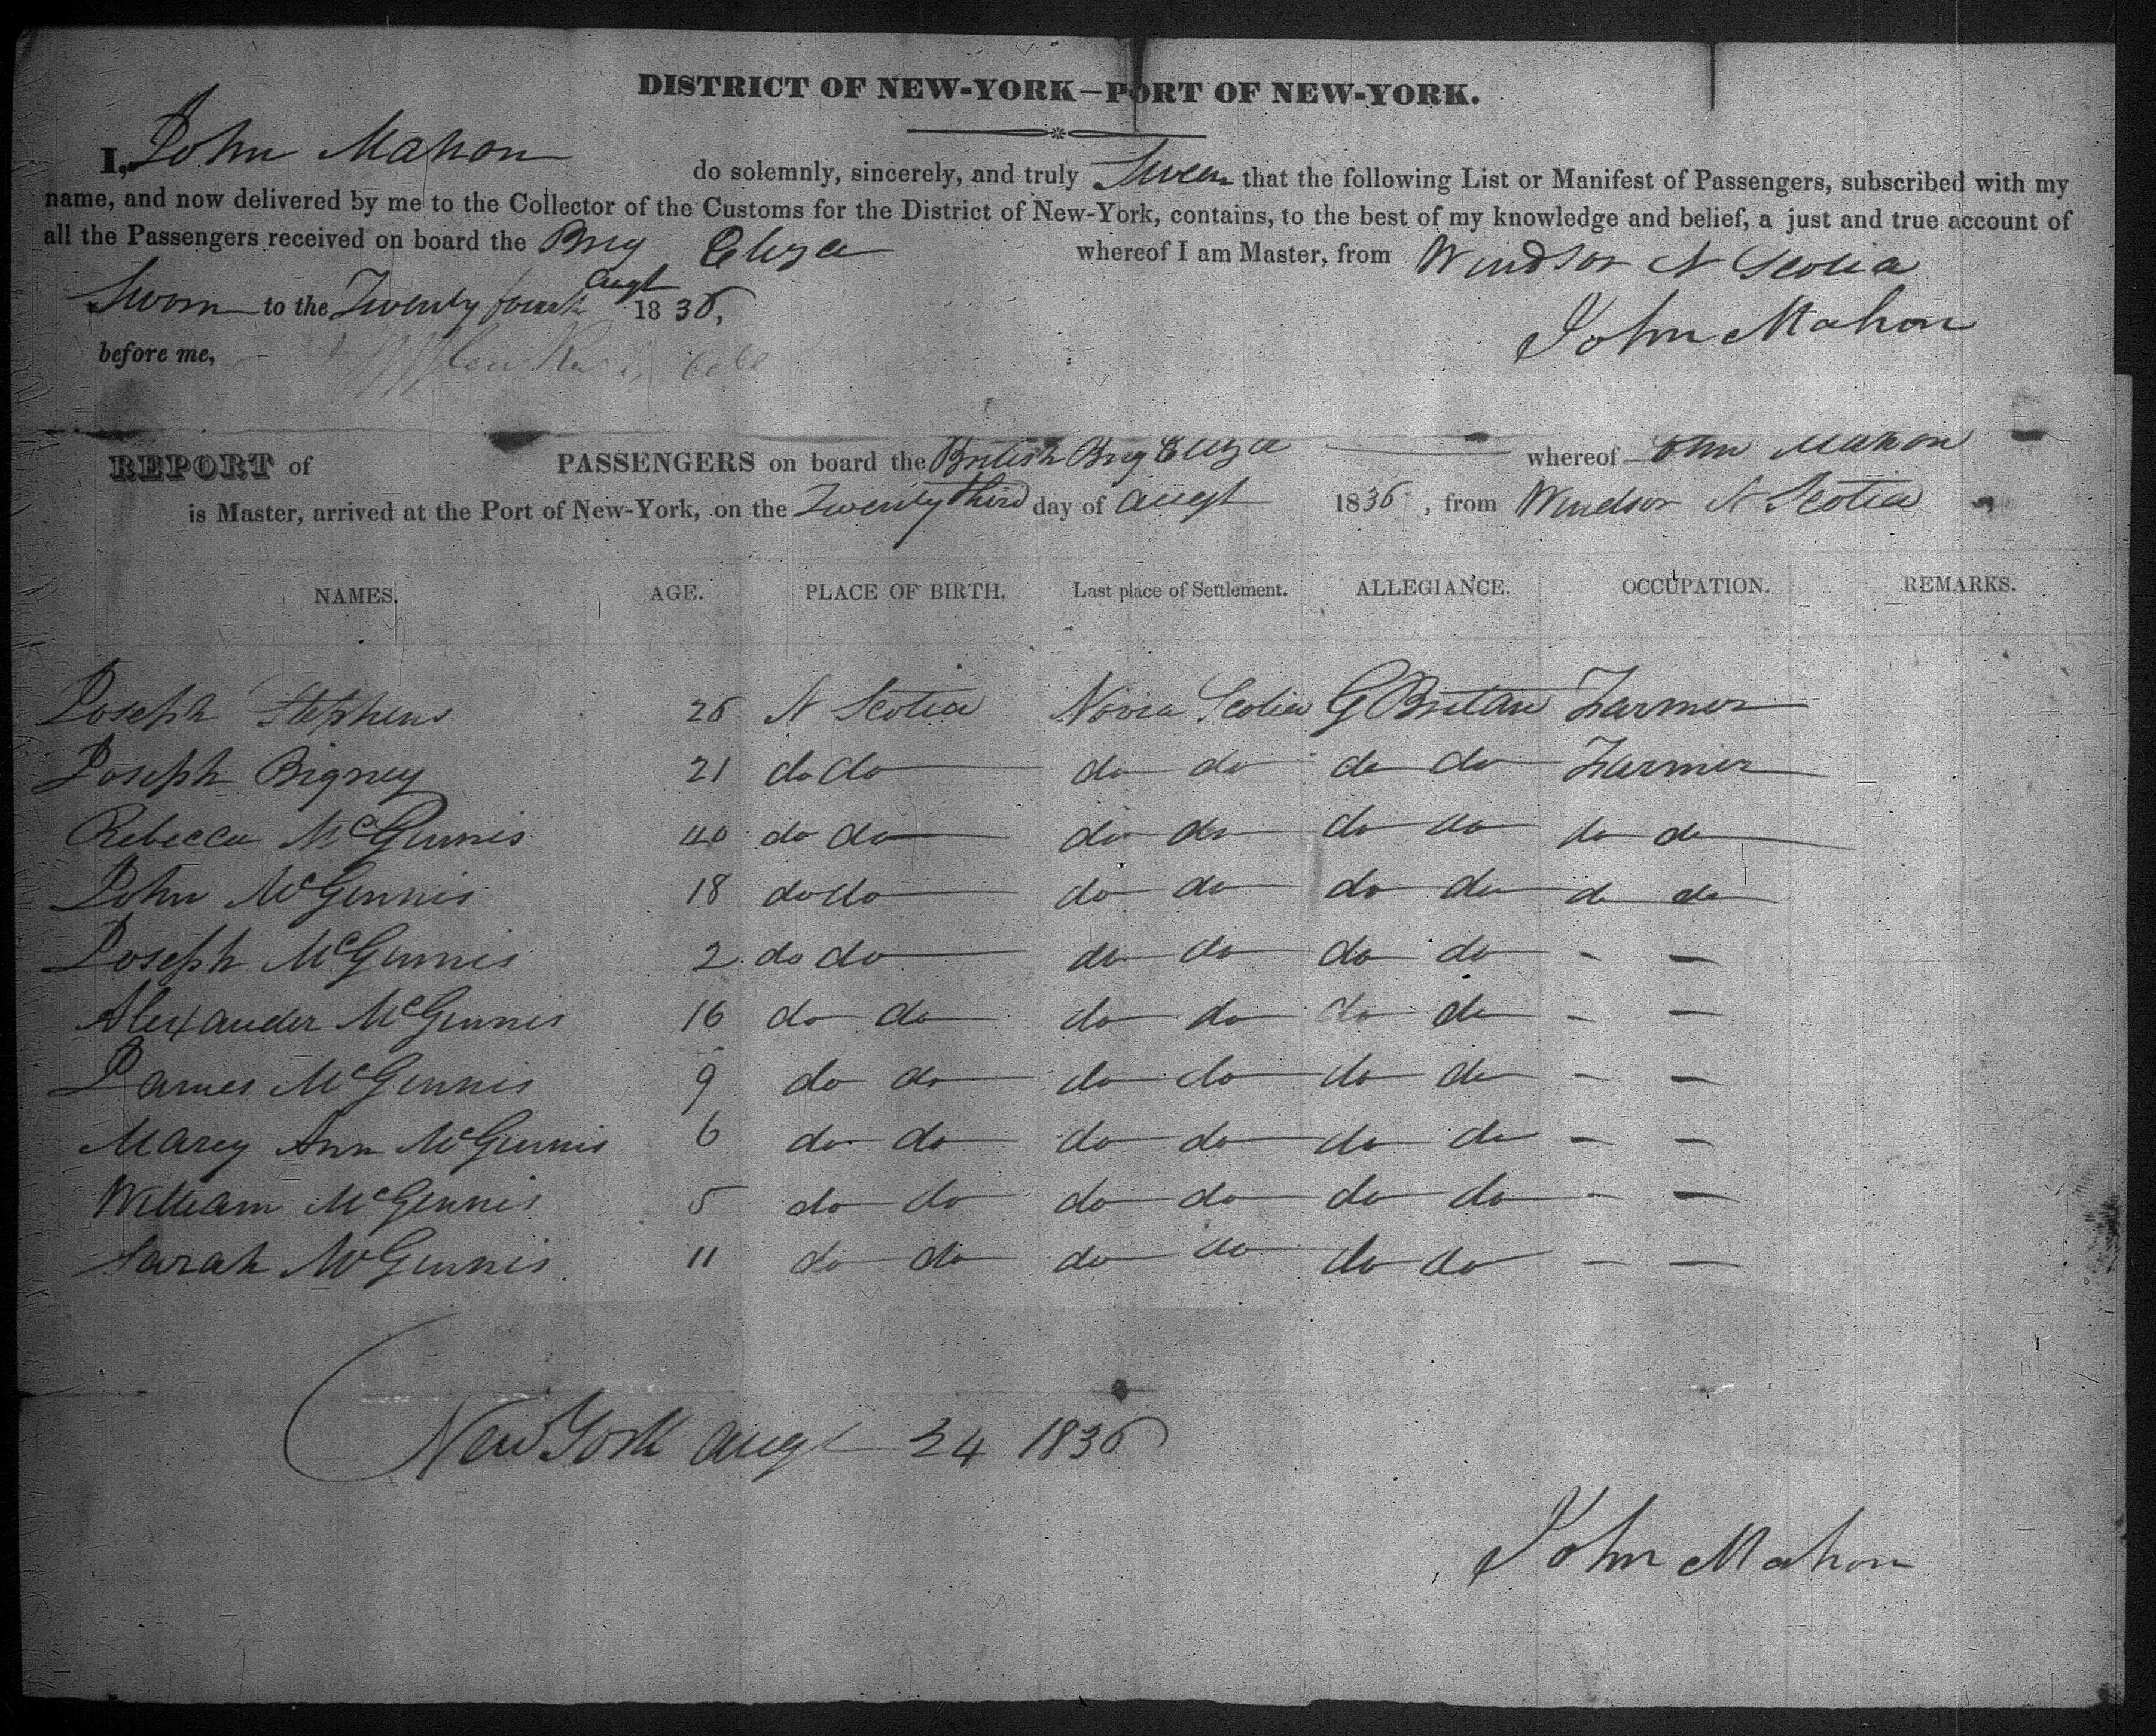 DISTRICT OF NEW-YORK—PORT OF NEW-YORK.
I, John Mahon do solemnly, sincerely, and truly Swear that the following List or Manifest of Passengers, subscribed with my
name, and now delivered by me to the Collector of the Customs for the District of New-York, contains, to the best of my knowledge and belief, a just and true account of
all the Passengers received on board the Brig Eliza whereof I am Master, from Windsor N Scotia
Sworn to the Twenty fourth Augt 1836,
John Mahon
before me,
REPORT of PASSENGERS on board the British Brig Eliza whereof John Mahon
is Master, arrived at the Port of New-York, on the Twenty third day of Augt 1836, from Windsor N Scotia
NAMES. AGE. PLACE OF BIRTH. Last place of Settlement. ALLEGIANCE. OCCUPATION. REMARKS.
Joseph Stephens 26 N Scotia Novia Scotia G Britan Farmer
Joseph Bigney 21 do do do do do do Farmer
Rebecca McGinnis 40 do do do do do do do do
John McGinnis 18 do do do do do do do do
Joseph McGinnis 2 do do do do do do - -
Alexander McGinnis 16 do do do do do do - -
James McGinnis 9 do do do do do do - -
Marey Ann McGinnis 6 do do do do do do - -
William McGinnis 5 do do do do do do - -
Sarah McGinnis 11 do do do do do do - -
New York Augt 24 1836
John Mahon